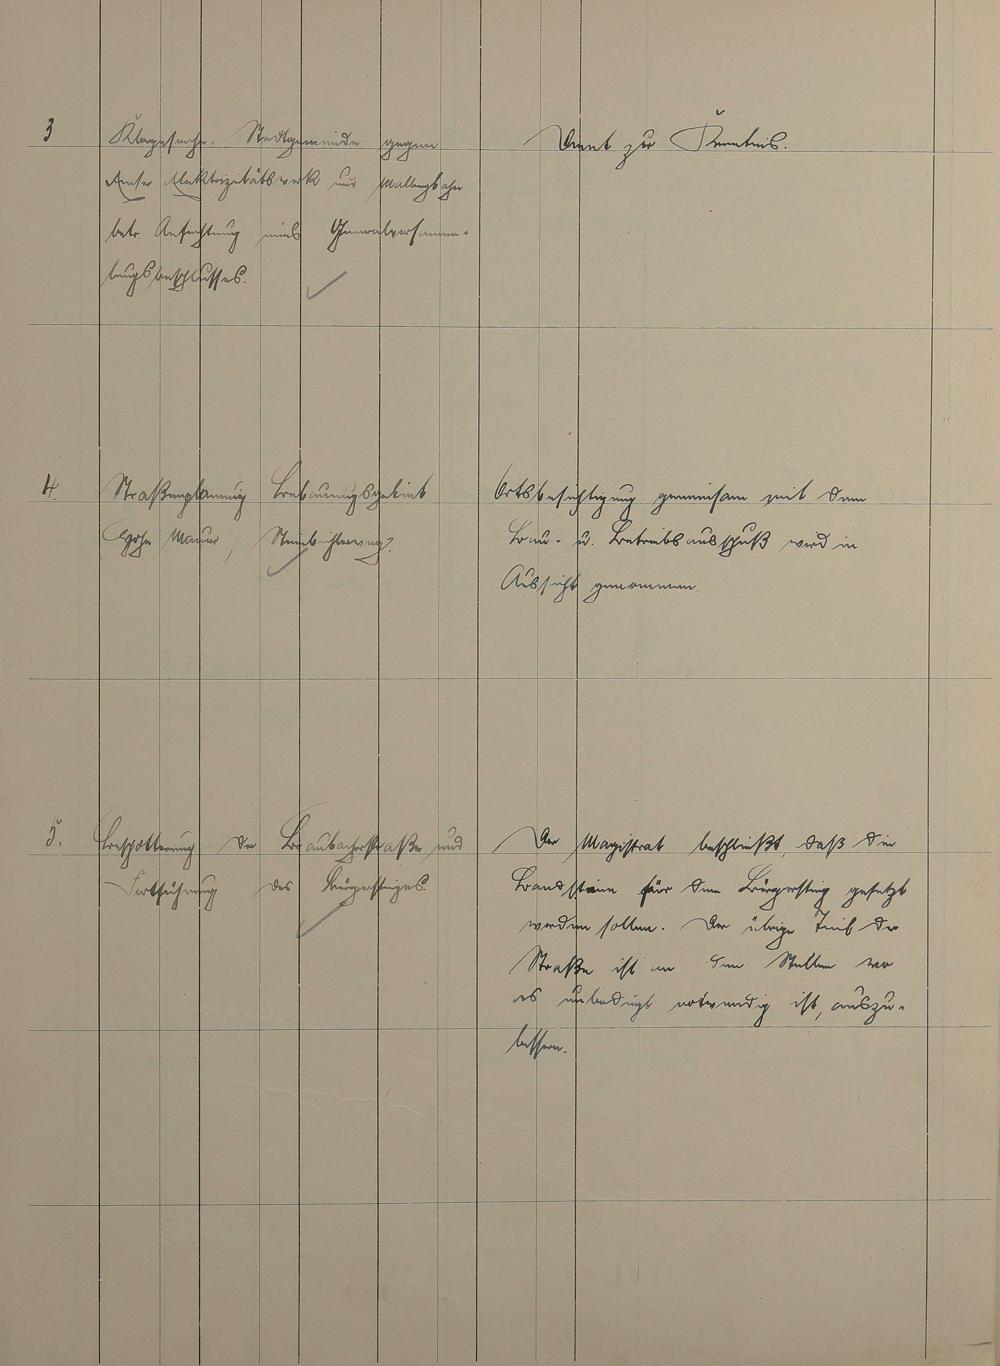 3
Klagesache. Stadtgemeinde gegen
Emser Elektrizitätswerk und Malbergbahn
betr. Anfechtung eines Generalversamm-
lungsbeschlusses.
Dient zur Kenntnis.
4.
Straßenplanung Bebauungsgebiet
Hohe Mauer, Steinbruchweg.
Ortsbesichtigung gemeinsam mit dem
Bau- u. Betriebsausschuß wird in
Aussicht genommen.
5.
Beschotterung der Braubacherstraße und
Fortführung des Bürgersteiges.
Der Magistrat beschließt, daß die
Bandsteine für den Bürgersteig gesetzt
werden sollen. Der übrige Teil der
Straße ist an den Stellen wo
es unbedingt notwendig ist, auszu-
bessern.